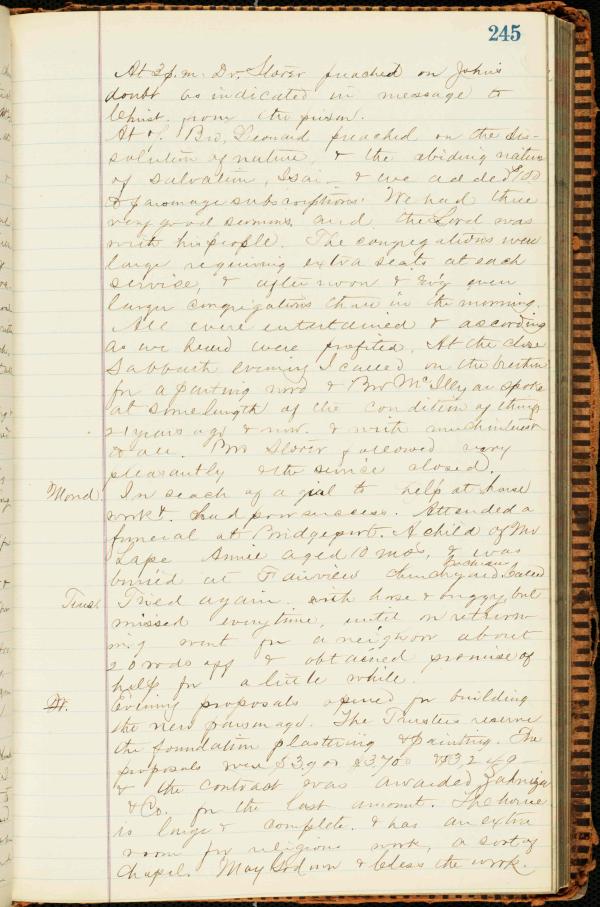 245
At 3 p.m. Dr. Storer preached on John's
doubt as indicated in message to
Christ from the prison.
At 7. Bro. Leonard preached on the dis-
solution of nature, & the abiding nature
of salvation, Isai — & we added $100
& parsonage subscriptions. We had three
very good sermons and the Lord was
with his people. The congregations were
large requiring extra seats at each
service, & afternoon & Ev'g even
larger congregations than in the morning.
All were entertained & according
as we heard were profited. At the close
Sabbath evening I called on the brethren
for a parting word & Bro McIlyar spoke
at some length of the condition of things
21 years ago & now. & with much interest
to all. Bro Storer followed very
pleasantly & the service closed.
Mond. In seach of a girl to help at house
work &. had poor success. Attended a
funeral at Bridgeport. A child of Mr
Lape Annie aged 10 mos, & was
buried at Fairview churchyard.
Tues. Tried again with horse & buggy but
missed everytime, until on return-
ing went for a neighbor about
20 rods off & obtained promise of
help for a little while.
Evening proposals opened for building
the new parsonage. The Trustees reserve
the foundation plastering & painting. The
proposals were $3,900 $3700 & $3249 —
& the contract was awarded
& Co. for the last amount. The house
is large & complete. & has an extra
room for religious work, a sort of
Chapel. May God own & bless the work.